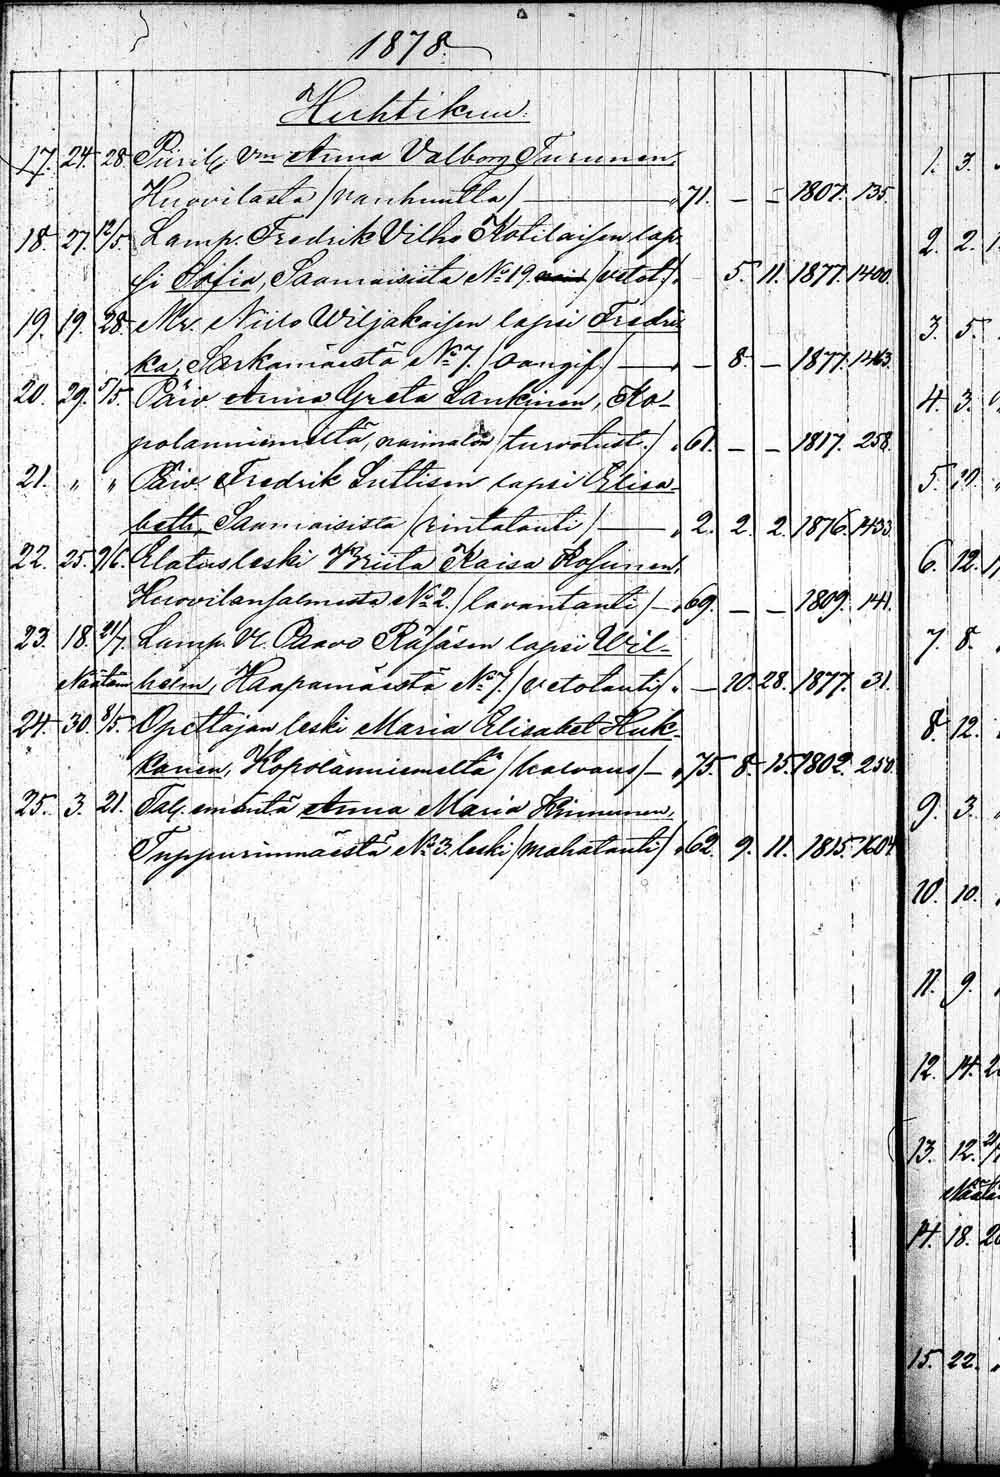 1878.
Huhtikuu.
17. 24. 28. Piirilf. Vm Anna Valborg Turunen,
Huovilasta /vanhuutta/ — „ 71. — — 1807. 135.
18. 27. 12/5. Lamp. Fredrik Vilho Kotilaisen lap-
si Sofia, Saamaisista No 19. /vetot./ „ — 5. 11. 1877. 1400.
19. 19. 28. Mr. Niilo Wiljakaisen lapsi Fredri-
ka, Särkamäestä No 7. — „ — 8. — 1877. 1463.
20. 29. 5/5. Päiv. Anna Greta Lankinen, Ko-
polanniemeltä, /turvotust./ „ 61. — — 1817. 258.
21. „ „ Päiv. Fredrik Suttisen lapsi Elisa-
beth, Saamaisista /rintatauti/ — „ 2. 2. 2. 1876. 1433.
22. 25. 2/6. Elatusleski Briita Kaisa Kosunen,
Huovilansalmesta No 2. /lavantauti/ — „ 69. — — 1809. 141.
23. 18. 21/7. Lamp. V. Paavo Räsäsen lapsi Wil-
helm, Haapamäestä No 7. /vetotauti/ „ — 10. 28. 1877. 31.
24. 30. 8/5. Opettajan leski Maria Elisabet Huk-
kanen, Kopolanniemeltä /halvaus/ — „ 75. 8. 15. 1802. 250.
25. 3. 21. Tal. emäntä Anna Maria Kinnunen,
Tuppurinmäestä No 3. leski /mahatauti/ „ 62. 9. 11. 1815. 1604.
1. 3.
2. 2.
3. 5.
4. 3.
5. 10.
6. 12.
7. 8.
8. 12.
9. 3.
10. 10.
11. 9.
12. 14.
13. 12.
14. 18.
15. 22.